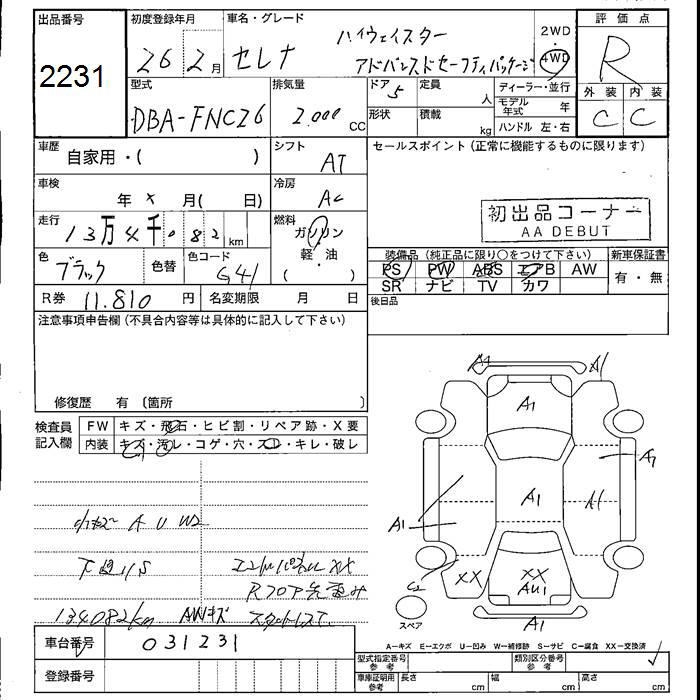 出品番号 初度登録年月 車名・グレード 2WD 評価点
2231 26 2月 セレナ ハイウェイスター 4WD R
アドバンスドセーフティパッケージ
型式 排気量 ドア 5 定員 人 ディーラー・並行 外装 内装
DBA-FNC26 2.000 CC 形状 積載 kg モデル年式 年 C C
ハンドル 左・右
車歴 自家用・( ) シフト AT セールスポイント(正常に機能するものに限ります)
車検 年 × 月( 日) 冷房 AC
初出品コーナー
AA DEBUT
走行 13万4千082km 燃料 ガソリン
軽・油
( )
色 ブラック 色替 色コード G41
装備品(純正品に限り○をつけて下さい) 新車保証書
PS PW ABS エアB AW 有・無
SR ナビ TV カワ
R券 11.810 円 名変期限 月 日 後日品
注意事項申告欄(不具合内容等は具体的に記入して下さい)
修復歴 有(箇所 )
検査員記入欄 FW キズ・飛石・ヒビ割・リペア跡・X要
内装 キズ・汚レ・コゲ・穴・スレ・キレ・破レ
A1 A1 A1 A1 A1
XX XX
AU1
A1
スペア
小キズ A U W2
下廻りS エンドパネル XX
Rフロア先歪み
134082km AWキズ スタットレスT.
車台番号 031231
A=キズ E=エクボ U=凹み W=補修跡 S=サビ C=腐食 XX=交換済
登録番号
型式指定番号 参考 類別区分番号 参考
車庫証明用 参考 長さ cm 幅 cm 高さ cm